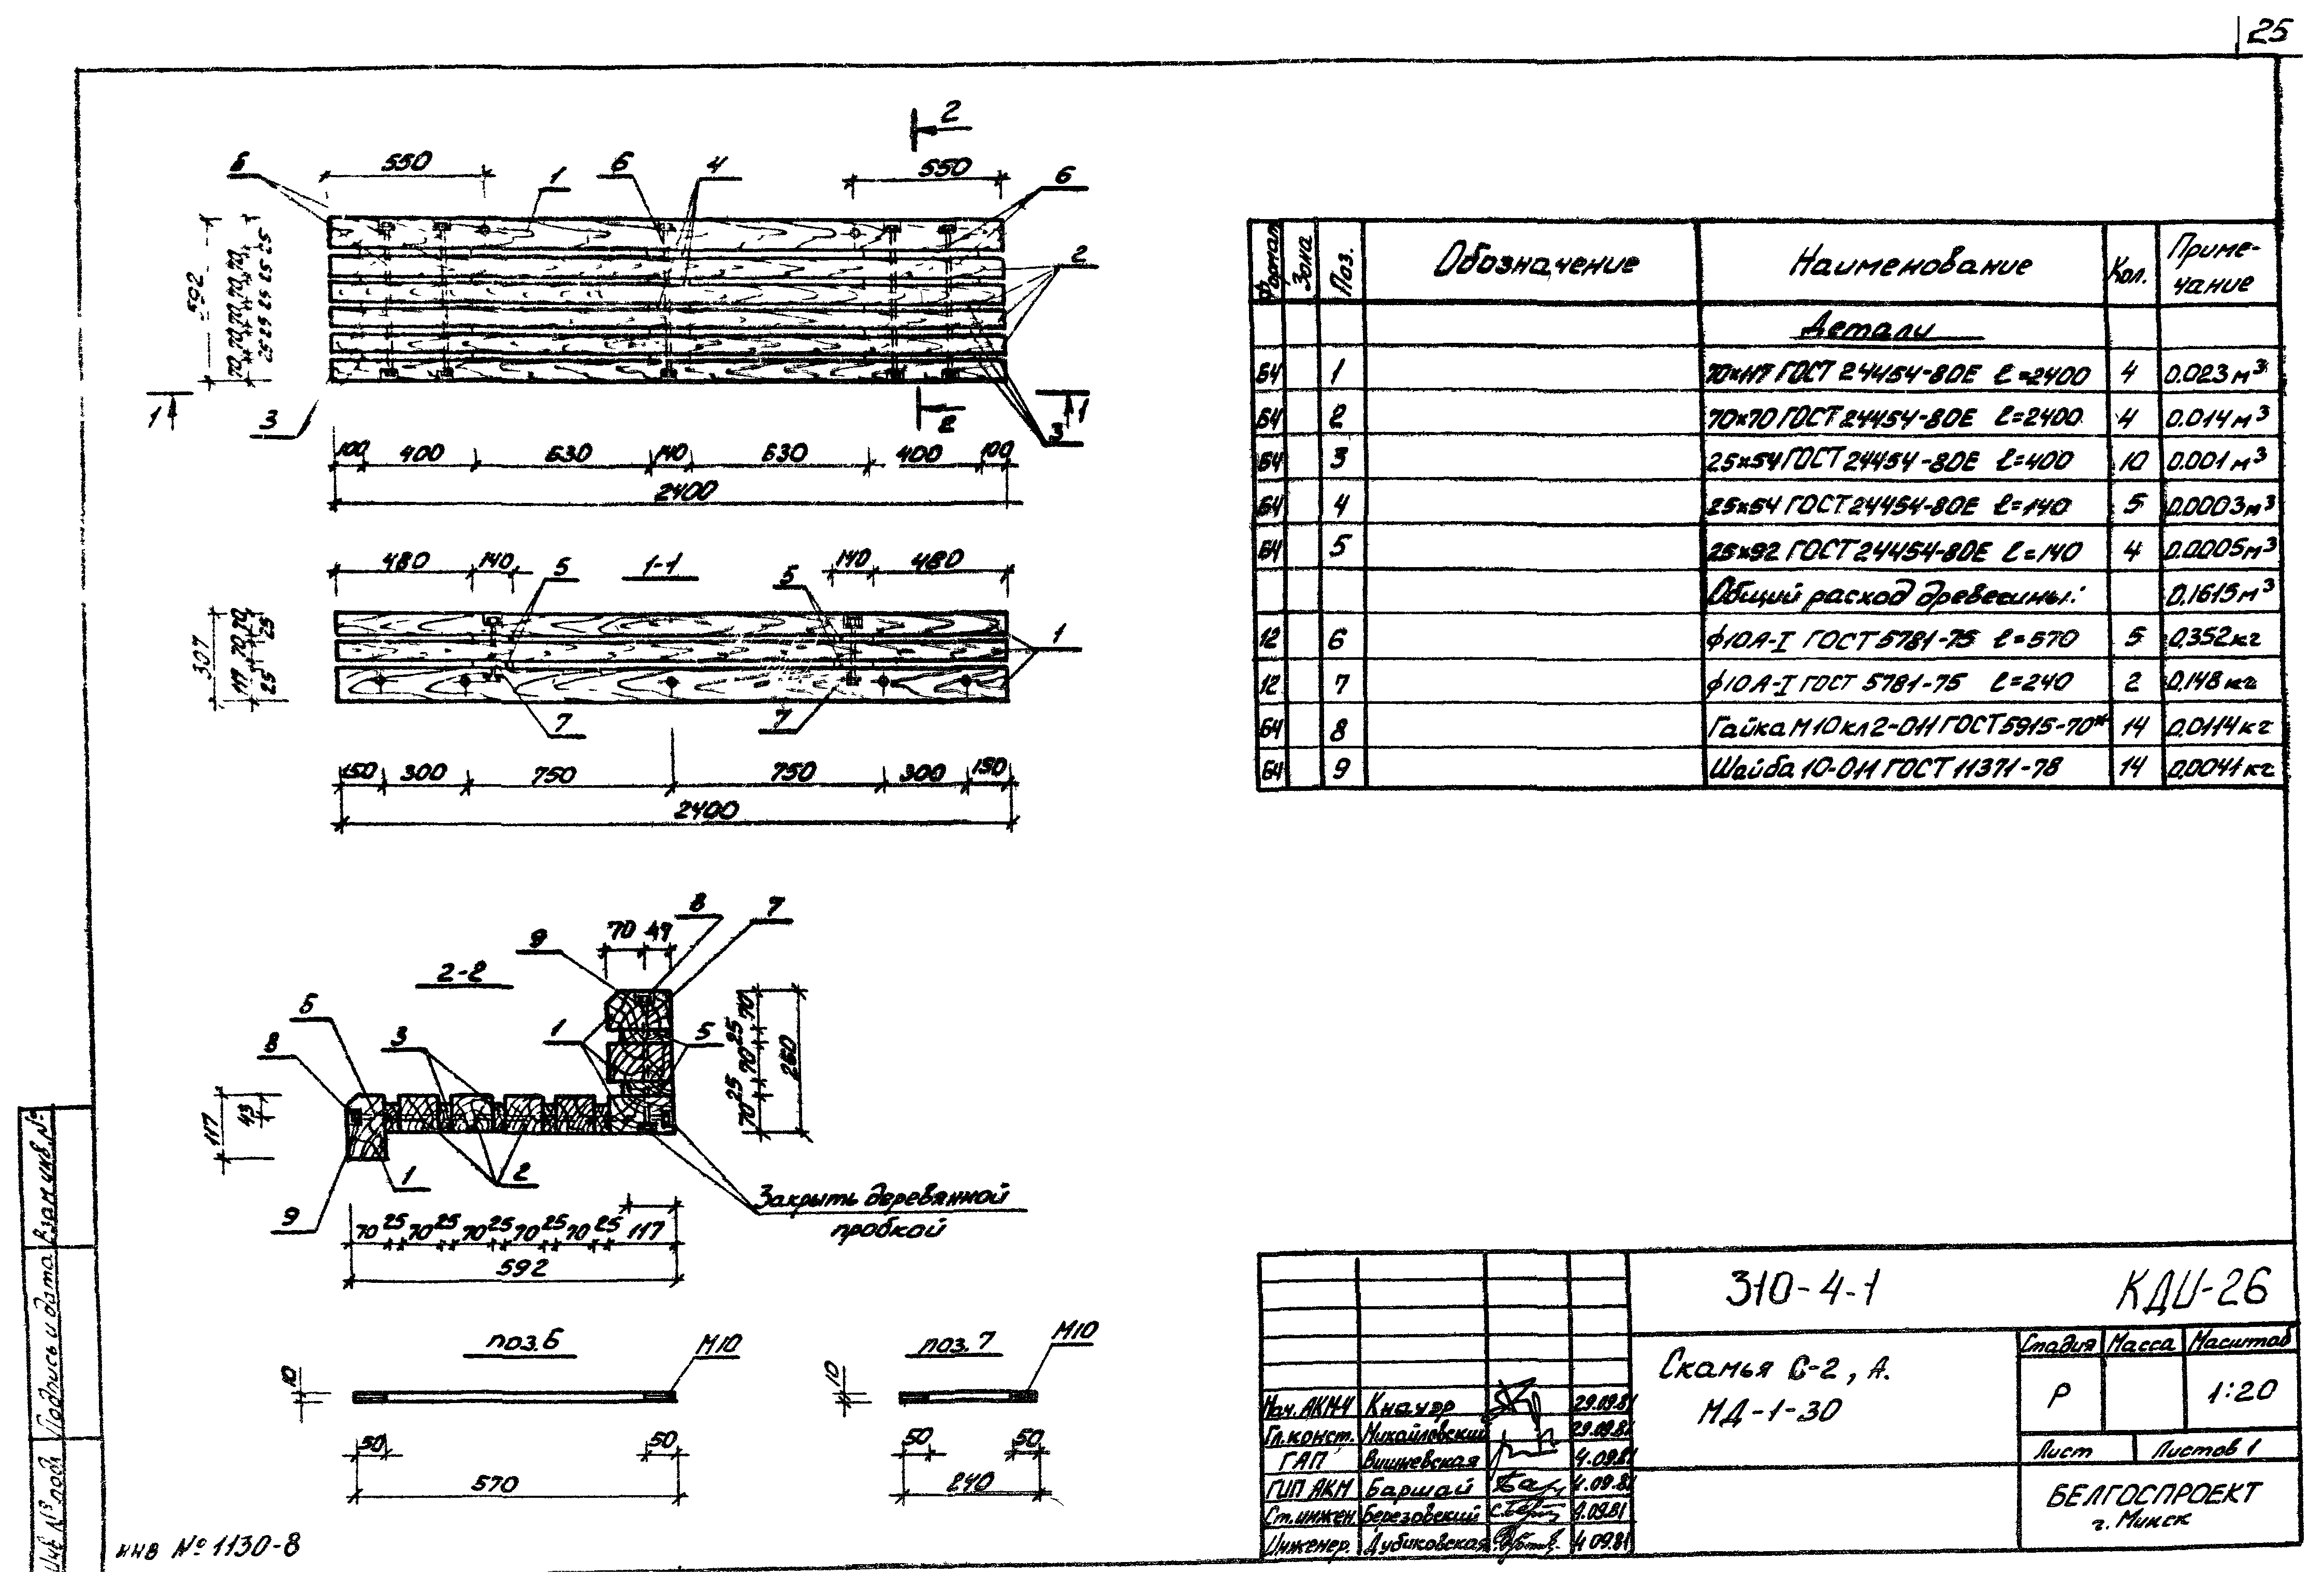 25
2
550
550
6
1
6
4
6
2
592
70 70 70 70 70
25 25 25 25 25
1
3
2
3
1
100 400 630 140 630 400 100
2400
480 140 5 1-1 5 140 480
307
117 70 70
25 25
1
7 7
150 300 750 750 300 150
2400
2-2
9
70 49
8
7
6
8
3
1
5
70 25 70 25 70
260
117
43
1
2
9
Закрыть деревянной
пробкой
70 25 70 25 70 25 70 25 70 25 117
592
поз.6 М10
10
50 50
570
поз.7 М10
10
50 50
240
Формат Зона Поз. Обозначение Наименование Кол. Приме-
чание
Детали
Б4 1 70×117 ГОСТ 24454-80Е ℓ=2400 4 0.023 м³
Б4 2 70×70 ГОСТ 24454-80Е ℓ=2400 4 0.014 м³
Б4 3 25×54 ГОСТ 24454-80Е ℓ=400 10 0.001 м³
Б4 4 25×54 ГОСТ 24454-80Е ℓ=140 5 0.0003 м³
Б4 5 25×92 ГОСТ 24454-80Е ℓ=140 4 0.0005 м³
Общий расход древесины: 0.1615 м³
12 6 ф10А-I ГОСТ 5781-75 ℓ=570 5 0,352 кг
12 7 ф10А-I ГОСТ 5781-75 ℓ=240 2 0,148 кг
Б4 8 Гайка М10 кл 2-011 ГОСТ 5915-70* 14 0,0114 кг
Б4 9 Шайба 10-011 ГОСТ 11371-78 14 0,0041 кг
310-4-1 КДИ-26
Скамья С-2, А.
МД-1-30
Стадия Масса Масштаб
Р 1:20
Лист Листов 1
БЕЛГОСПРОЕКТ
г. Минск
Нач. АКМ-4 Кнауэр 29.09.81
Гл. конст. Михайловский 29.09.81
ГАП Вишневская 4.09.81
ГИП АКМ Баршай 4.09.81
Ст. инжен. Березовский 4.09.81
Инженер. Дубиковская 4 09.81
Взам инв. №
Подпись и дата
Инв № подл
инв № 1130-8